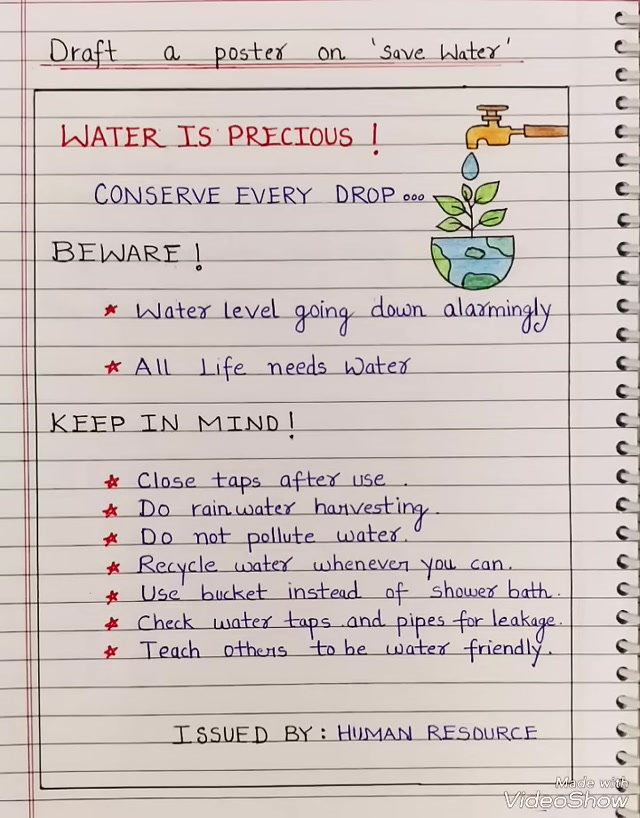 Draft a poster on 'Save Water'
WATER IS PRECIOUS !
CONSERVE EVERY DROP...
BEWARE !
Water level going down alarmingly
All Life needs Water
KEEP IN MIND!
Close taps after use .
Do rainwater harvesting.
Do not pollute water.
Recycle water whenever you can.
Use bucket instead of shower bath.
Check water taps and pipes for leakage.
Teach others to be water friendly.
ISSUED BY : HUMAN RESOURCE
Made with
VideoShow